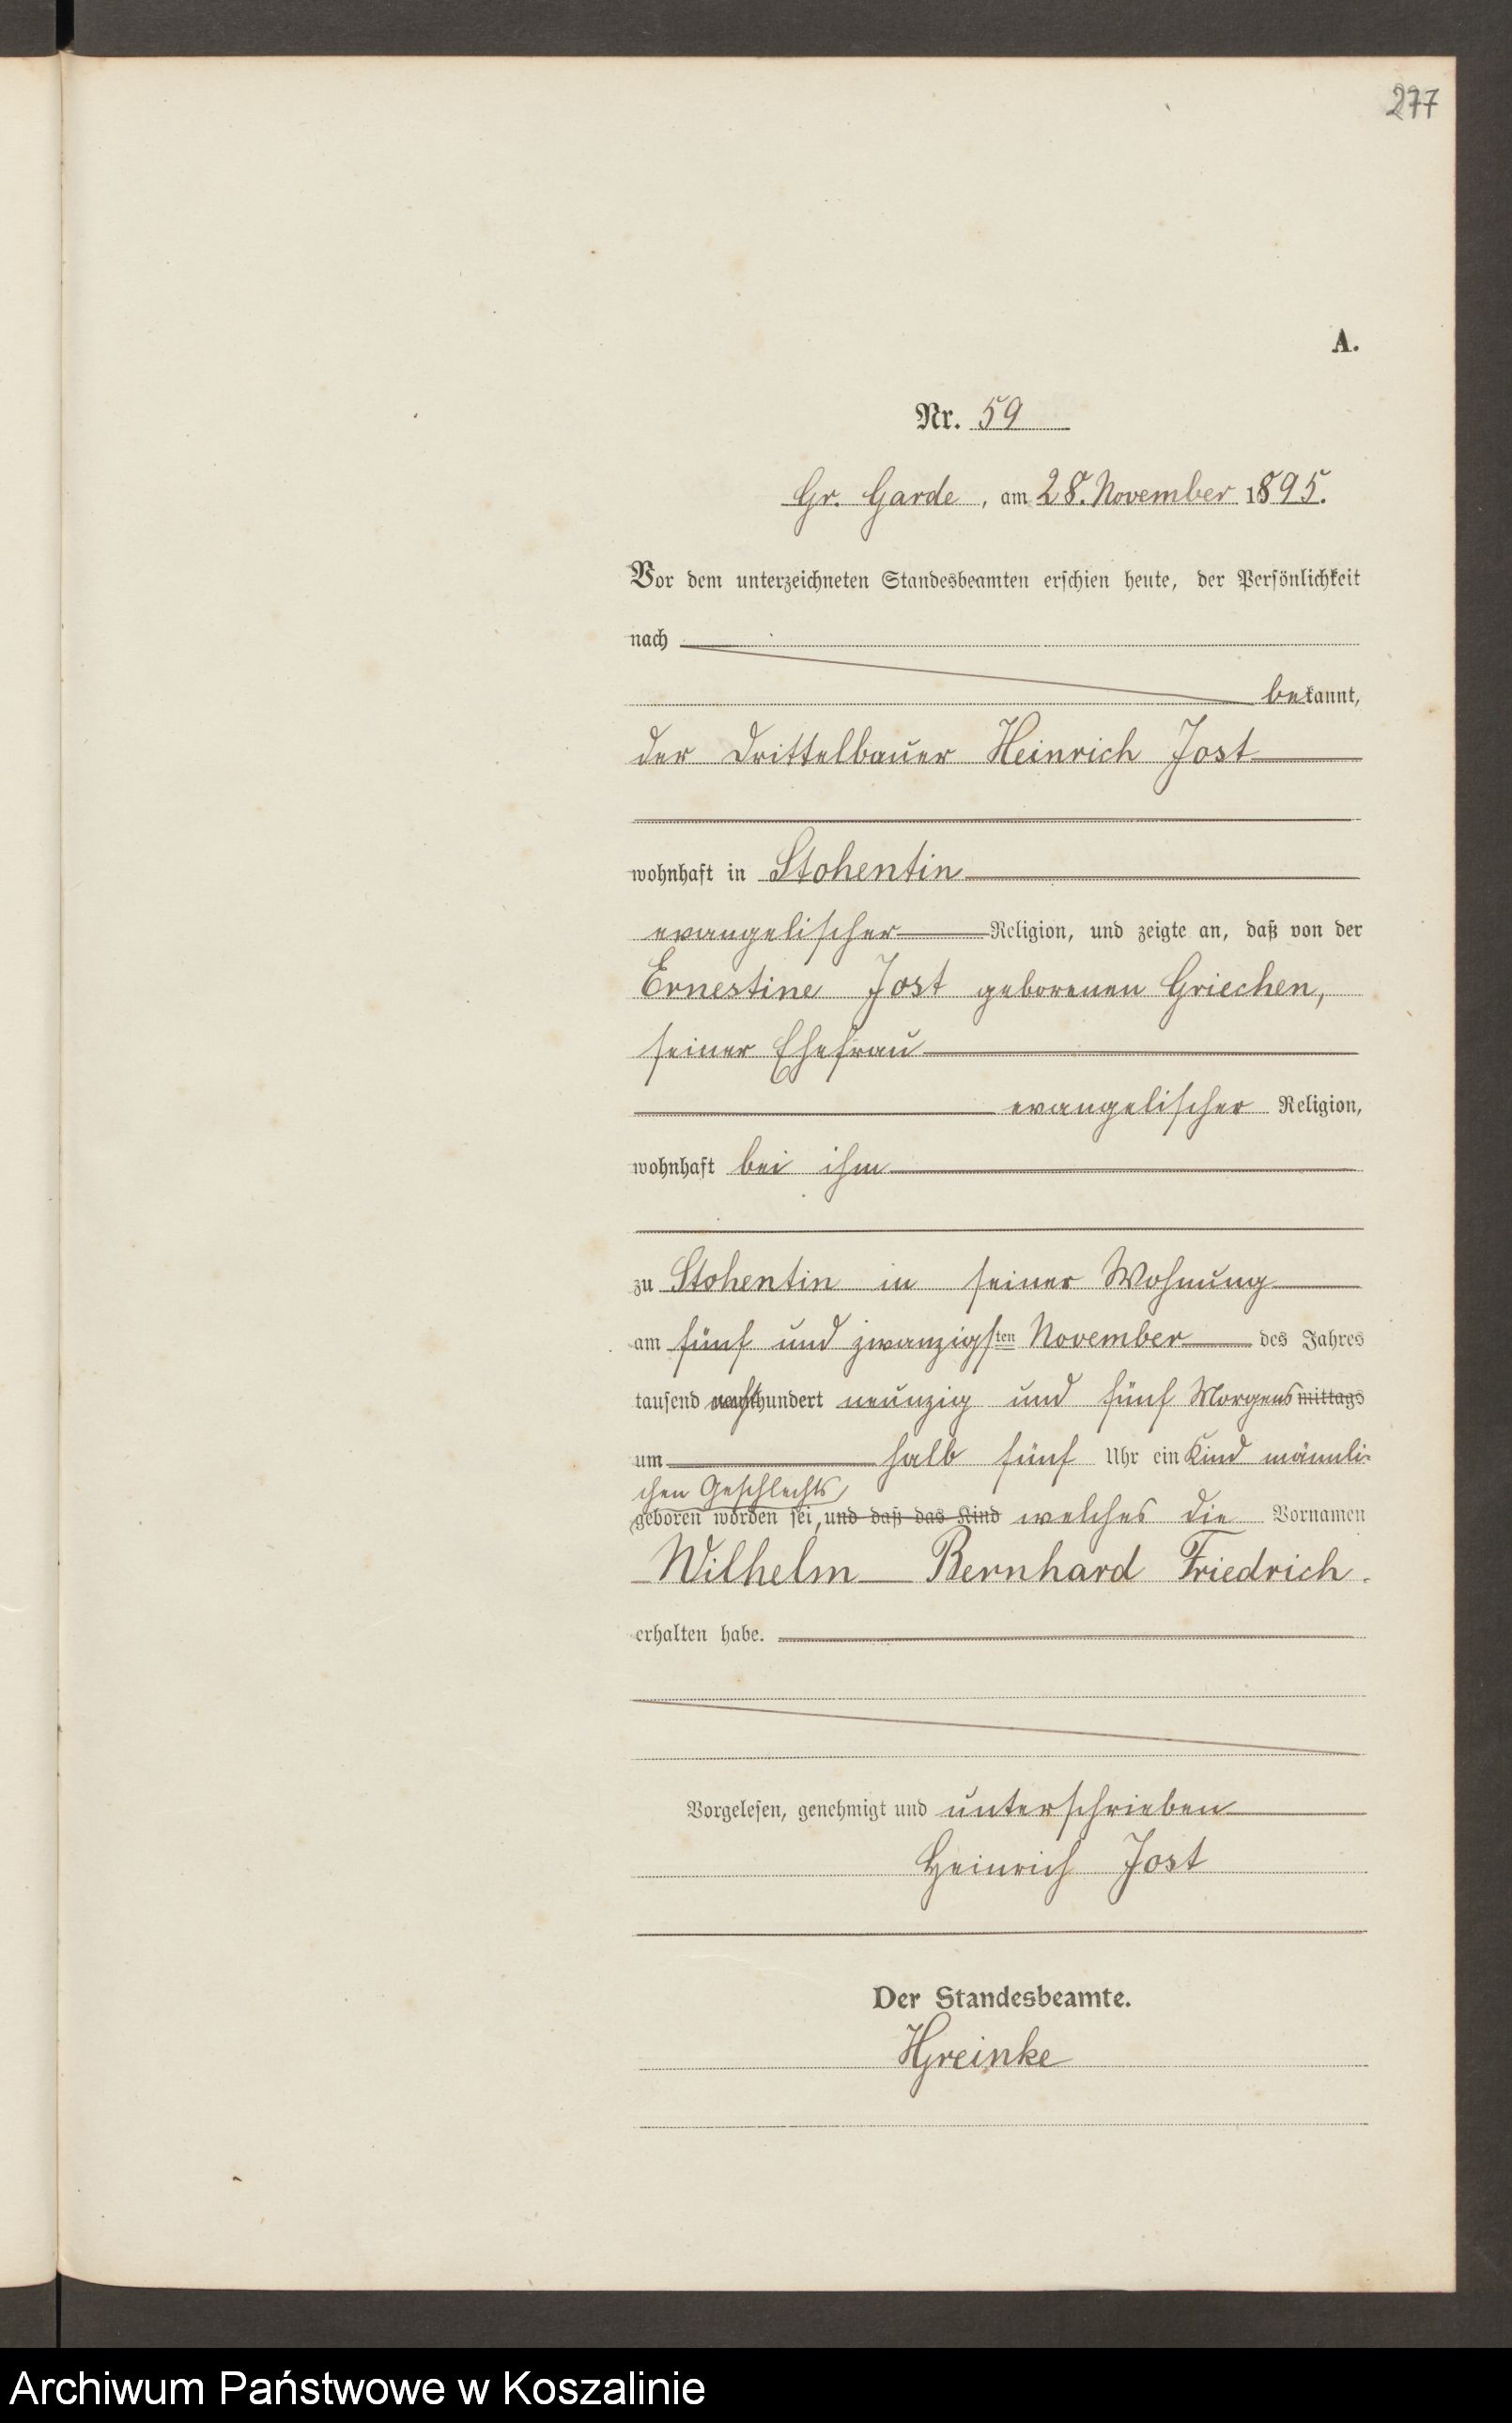 277
A.
Nr. 59
Gr. Garde, am 28. November 1895.
Vor dem unterzeichneten Standesbeamten erschien heute, der Persönlichkeit
nach
bekannt,
der Drittelbauer Heinrich Jost
wohnhaft in Stohentin
evangelischer Religion, und zeigte an, daß von der
Ernestine Jost geborenen Griechen,
seiner Ehefrau
evangelischer Religion,
wohnhaft bei ihm
zu Stohentin in seiner Wohnung
am fünf und zwanzigsten November des Jahres
tausend achthundert neunzig und fünf Morgens mittags
um halb fünf Uhr ein Kind männli-
chen Geschlechts
geboren worden sei, und daß das Kind welches die Vornamen
Wilhelm Bernhard Friedrich.
erhalten habe.
Vorgelesen, genehmigt und unterschrieben
Heinrich Jost
Der Standesbeamte.
Archiwum Państwowe w Koszalinie